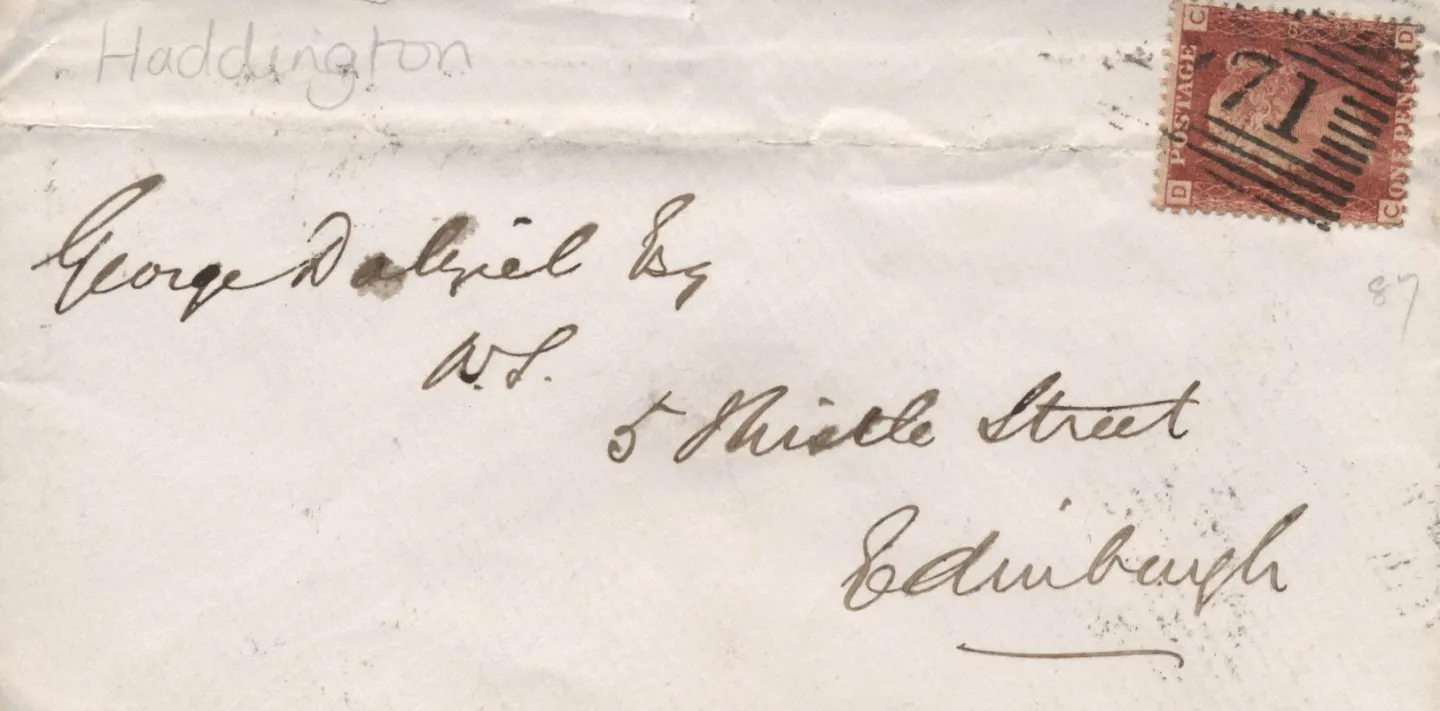 Haddington
D C
POSTAGE
ONE PENNY
C D
71
George Dalziel Esq
W.S.
87
5 Thistle Street
Edinburgh